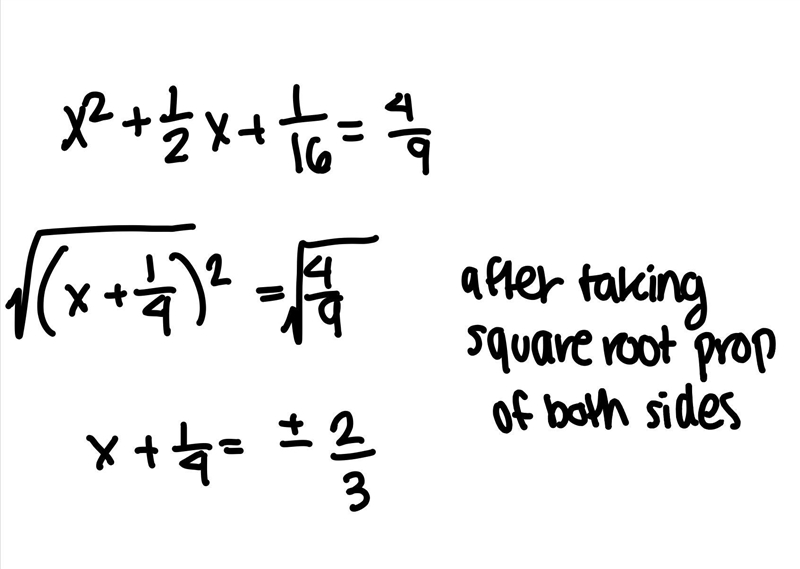 x² + 1/2 x + 1/16 = 4/9
√(x + 1/4)² = √4/9
after taking
square root prop
of both sides
x + 1/4 = ± 2/3